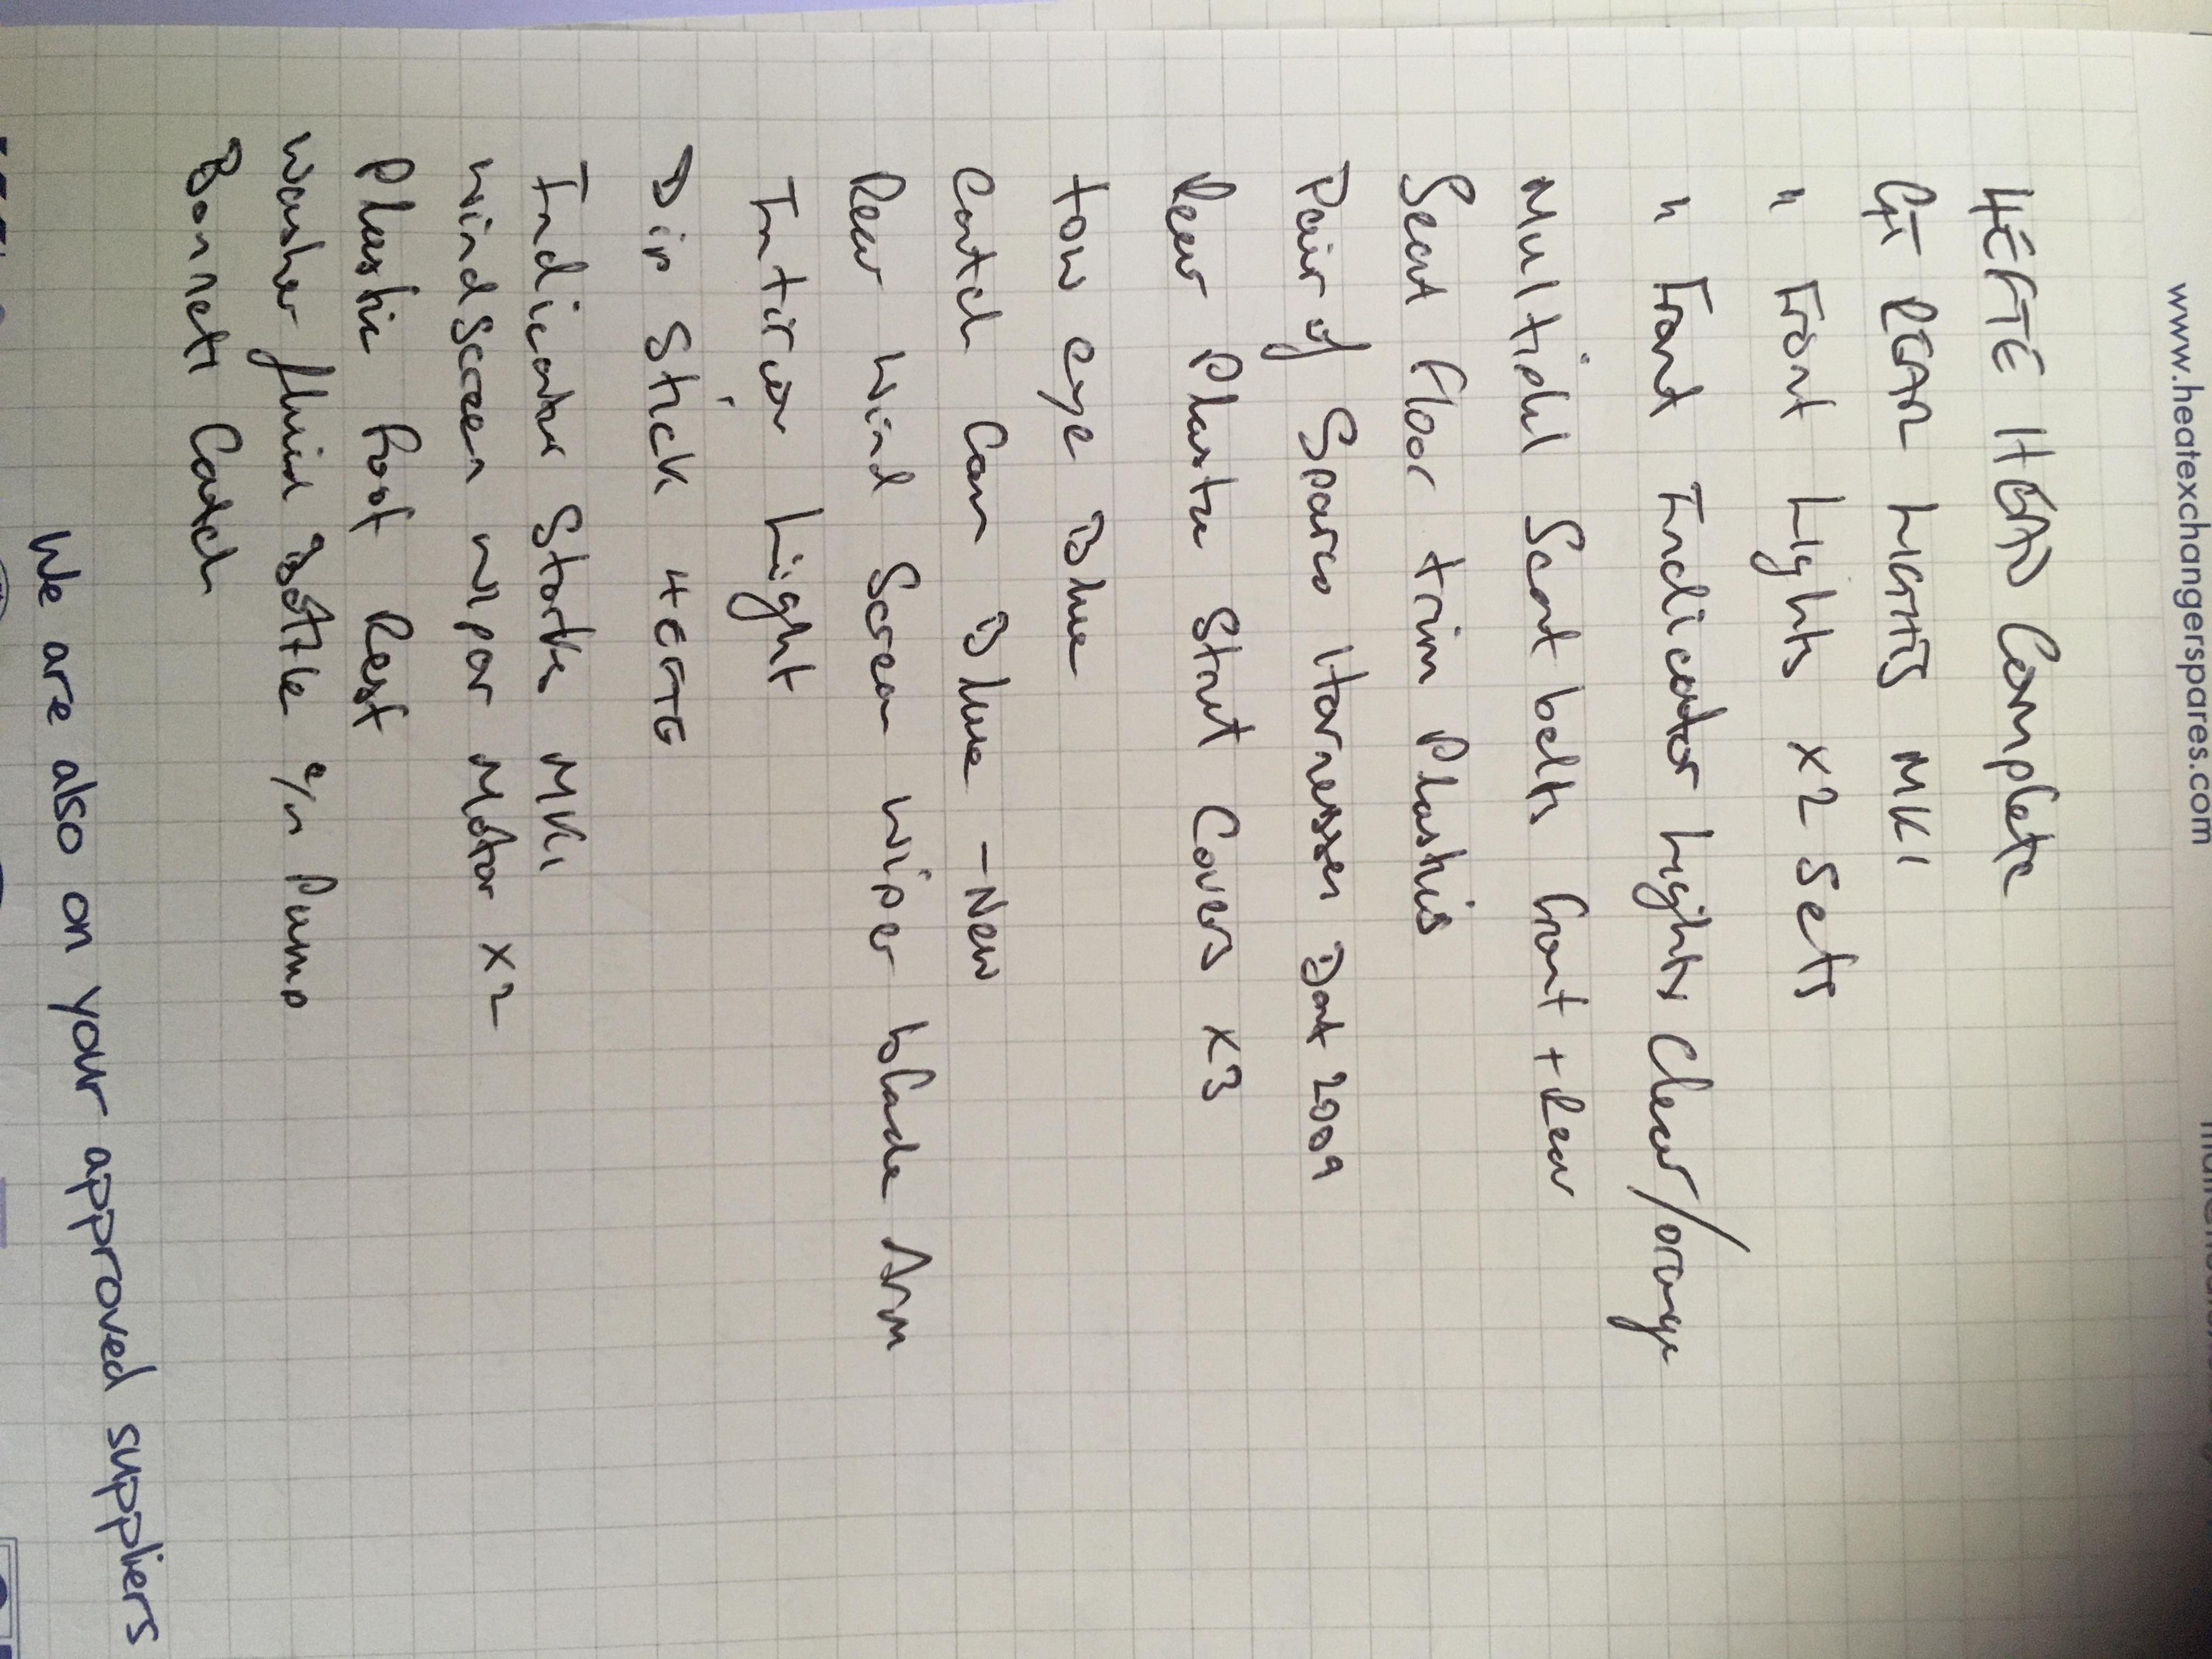 www.heatexchangerspares.com
4EFTE HEAD Complete
GT REAR LIGHTS MK1
" Front Lights x2 Sets
" Front Indicator Lights Clear/orange
Multipul Seat belts front + Rear
Seat Floor trim Plastics
Pair of Sparco Harnesses Dat 2009
Rear Plastic Strut Covers x3
Tow eye Blue
Catch Can Blue - New
Rear Wind Screen Wiper blade Arm
Intirior Light
Dip Stick 4EFTE
Indicator Storks MK1
Windscreen wipor Motor x2
Plastic Foot Rest
Washer fluid Bottle Pump
Bonnett Catch
We are also on your approved suppliers